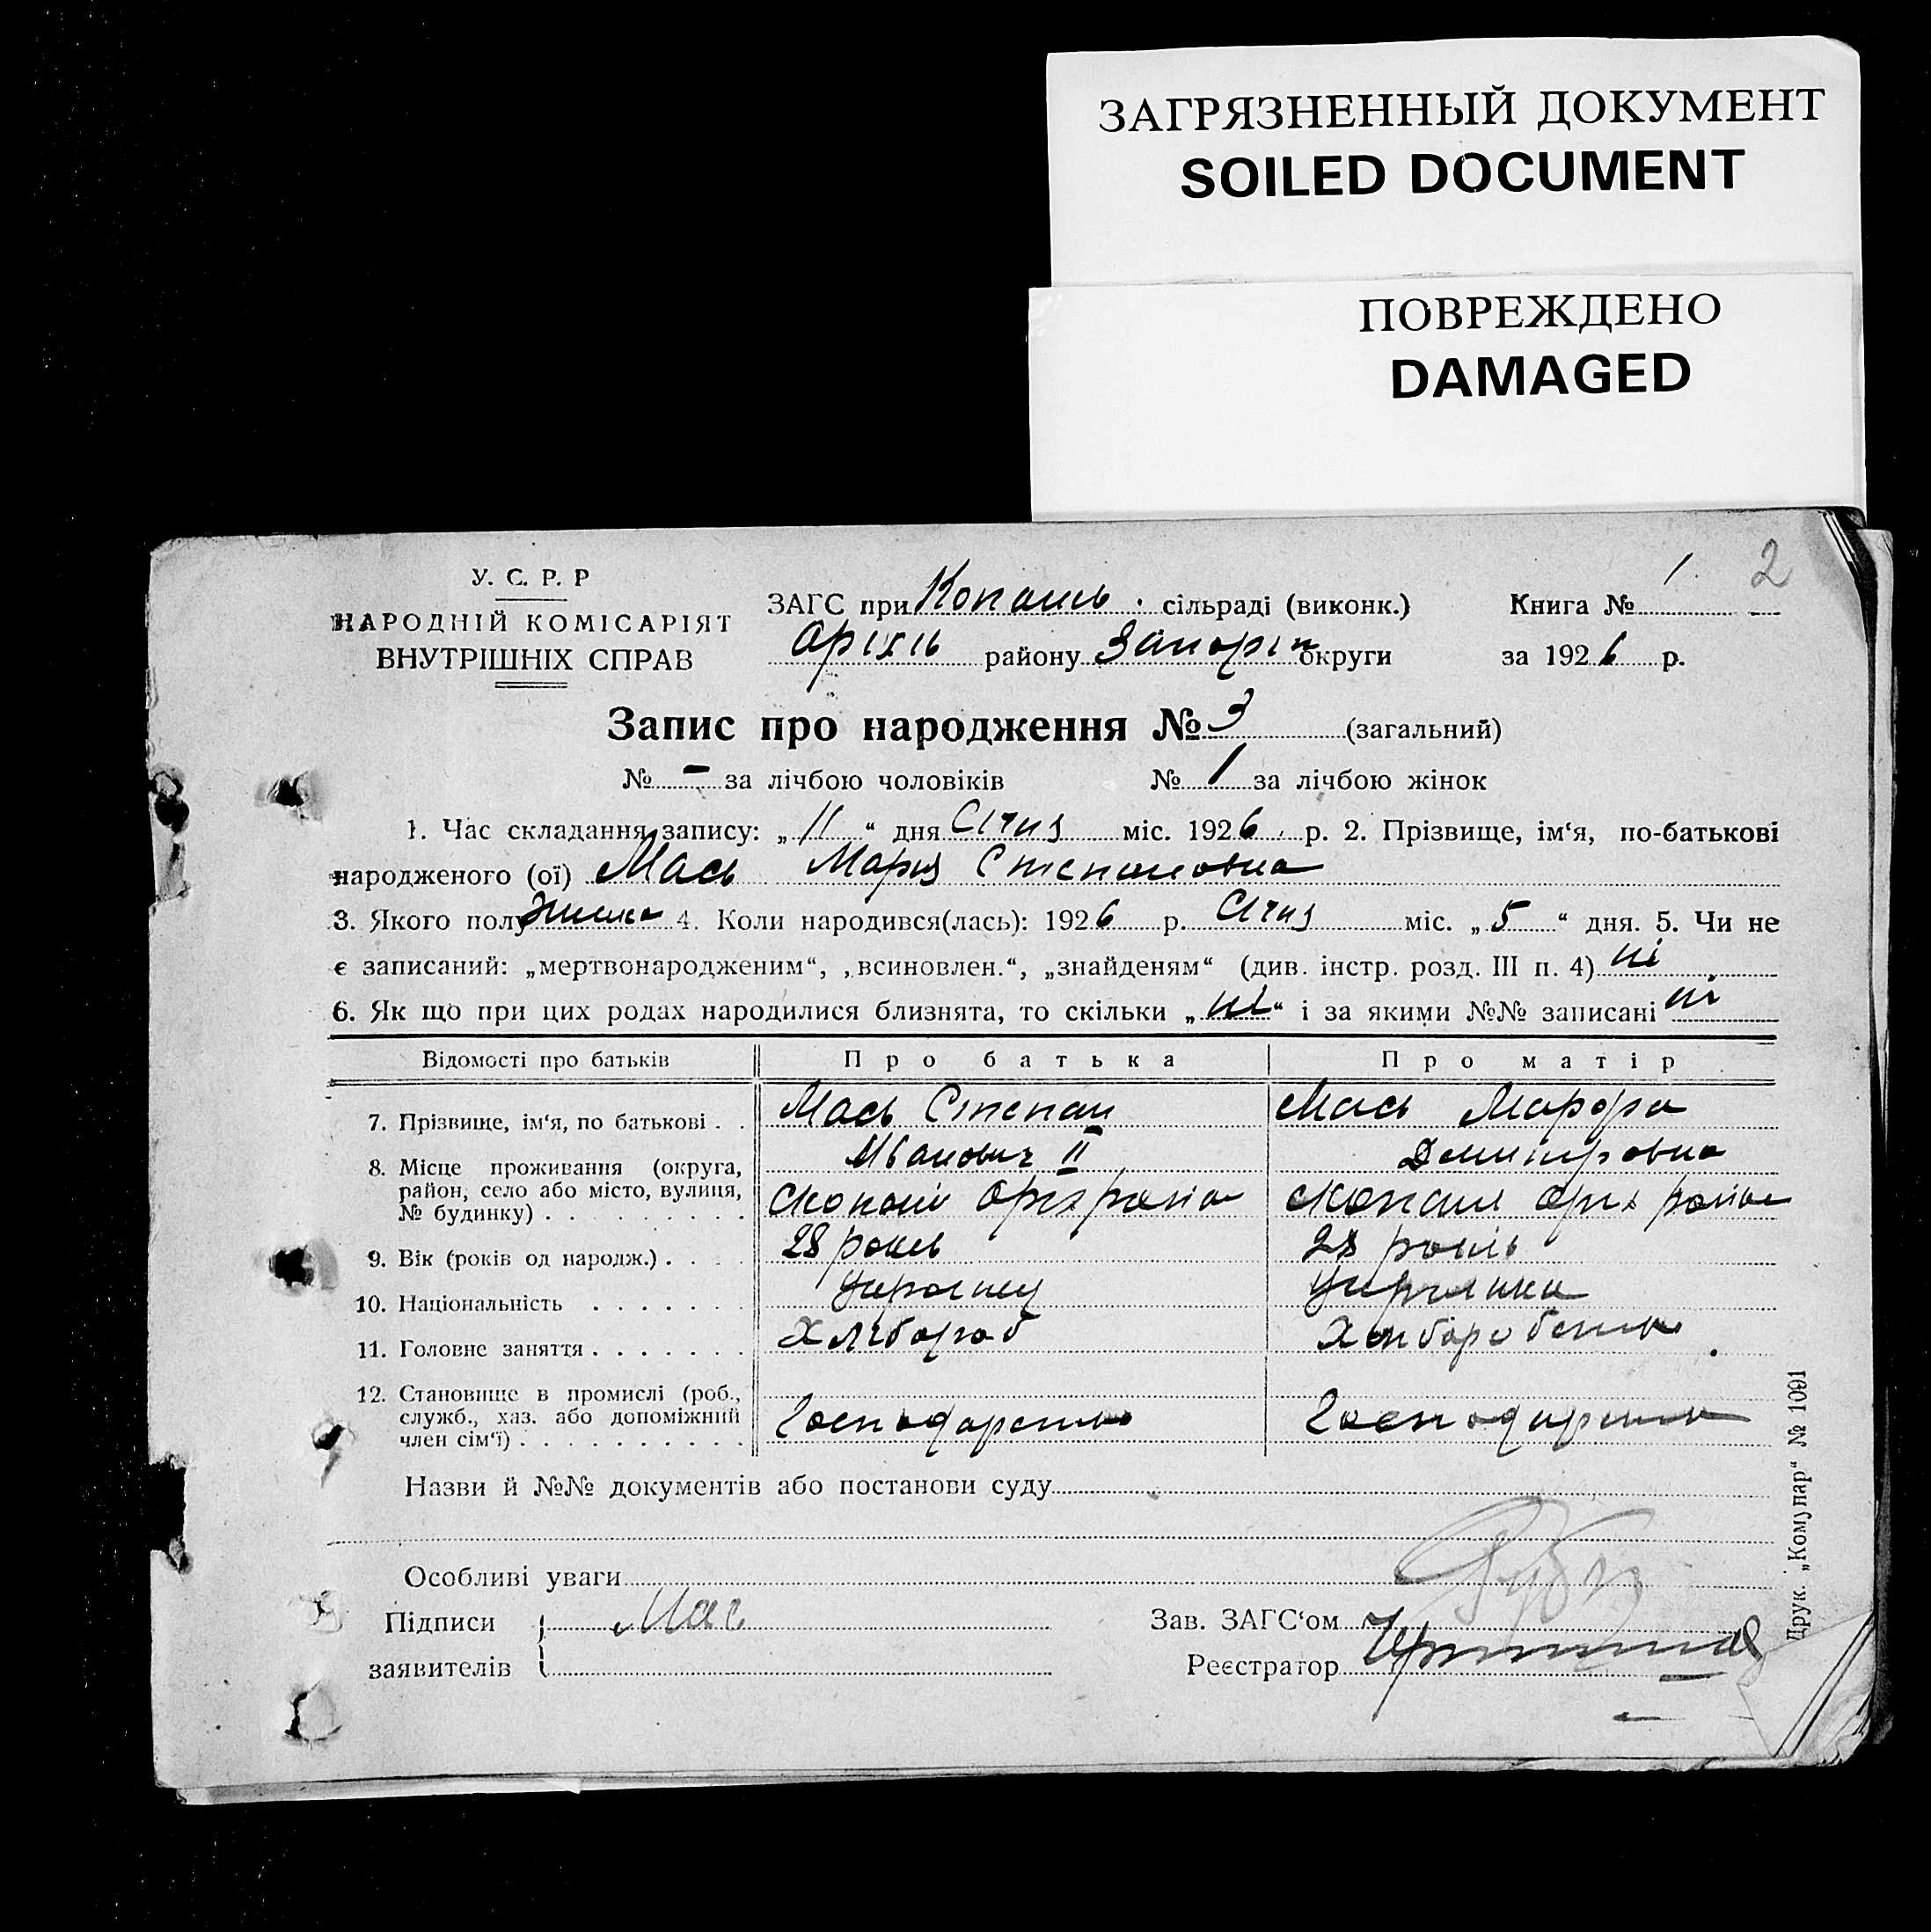 ЗАГРЯЗНЕННЫЙ ДОКУМЕНТ
SOILED DOCUMENT
ПОВРЕЖДЕНО
DAMAGED
2
У. С. Р. Р
НАРОДНІЙ КОМІСАРІЯТ
ВНУТРІШНІХ СПРАВ
ЗАГС при Копань. сільраді (виконк.) Книга № 1
Оріхів району Запоріж округи за 1926 р.
Запис про народження № 3 (загальний)
№ - за лічбою чоловіків № 1 за лічбою жінок
1. Час складання запису: „11“ дня Січня міс. 1926 р. 2. Прізвище, ім‘я, по-батькові
народженого (ої) Мась Мария Степановна
3. Якого полу 4. Коли народився(лась): 1926 р. Січня міс. „5“ дня. 5. Чи не
є записаний: „мертвонародженим“, „всиновлен.“, „знайденям“ (див. інстр. розд. III п. 4) ні
6. Як що при цих родах народилися близнята, то скільки „ні“ і за якими №№ записані ні
Відомості про батьків Про батька Про матір
7. Прізвище, ім‘я, по батькові . . Мась Степан Иванович II Мась Марфа Демитровна
8. Місце проживання (округа,
район, село або місто, вулиця,
№ будинку) . . . . . . . . .
9. Вік (років од народж.) . . . . 28 років 28 років
10. Національність . . . . . . . Українец Українка
11. Головне заняття . . . . . . . Хлібороб
12. Становище в промислі (роб.,
служб., хаз. або допоміжний
член сім‘ї) . . . . . . . . . .
Назви й №№ документів або постанови суду
Особливі уваги
Підписи Мас
заявителів
Зав. ЗАГС‘ом
Реєстратор
Друк. „Комунар“ № 1091